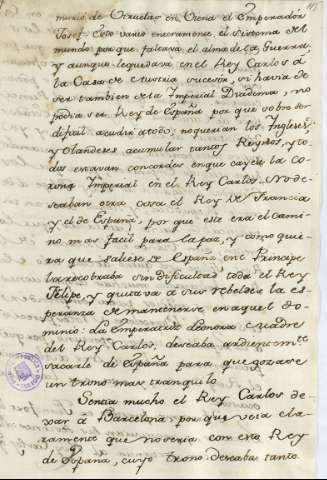 murió de Viruelas en Viena el Emperador
Josef. Esto varió enteramente el sistema del
mundo por que faltava el alma de la Guerra,
y aunque le quedava en el Rey Carlos á
la Casa de Austria sucesón, si havia de
ser tambien de la Imperial Diadema, no
podia ser Rey de España por que sobre ser
dificil acudir a todo; no querian los Ingleses,
y Olandeses acumular tantos Reynos, y to
dos estavan concordes en que cayese la Co
rona Imperial en el Rey Carlos. No de
seaban otra cosa el Rey de Francia
y el de España, por que este era el cami
no mas facil para la paz, y como qui
ra que saliese de España este Principe
la recobraba sin dificultad toda el Rey
Felipe, y quitava á sus rebeldes la es
peranza de mantenerse en aquel do
minio. La Emperatriz Leonora Madre
del Rey Carlos, deseaba ardientmte
sacarle de España para que gozase
un trono mas tranquilo
Sentia mucho el Rey Carlos de
xar á Barcelona, por que veia cla
ramente que no seria con esto Rey
de España, cuyo trono deseaba tanto